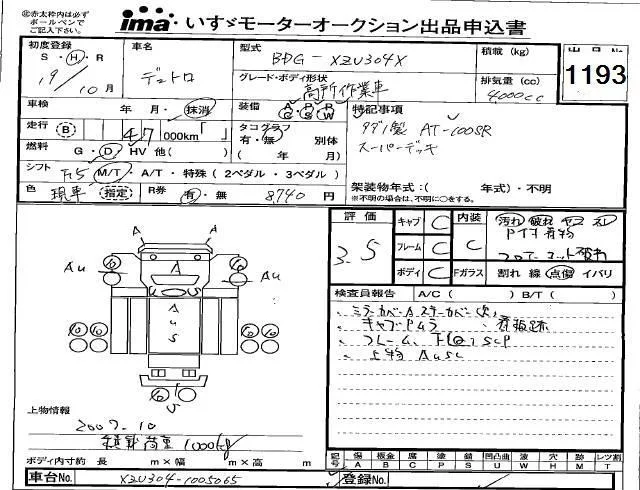 ㊟赤太枠内は必ず
ボールペンで
ご記入下さい。
ima いすゞモーターオークション出品申込書
初度登録 S・H・R 19年 10月
車名 デュトロ
型式 BDG-XZU304X
グレード・ボディ形状 高所作業車
積載 (kg)
排気量 (cc) 4000cc
出品No. 1193
車検 年・月・抹消
装備 A/C P/S R/S P/W
特記事項
タダノ製 AT-100SR
スーパーデッキ
走行 B 47,000km「 」
タコグラフ 有・無 別体
( 年/ 月)
燃料 G・D・HV 他( )
シフト F5 M/T・A/T・特殊(2ペダル・3ペダル)
架装物年式:( 年式)・不明
※不明の場合は、不明に○をする。
色 現車 (指定) R券 有・無 8740 円
評価 3.5
キャブ C
フレーム C
ボディ C
内装 C
Fガラス
汚れ 破れ ヤヌ スレ
割れ 線 点傷 イバリ
検査員報告 A/C( ) B/T( )
ミラーカバーA ステーカバー欠
キャブ下ムラ 看板跡
フレーム、下回りSCP
上物 AUSC
A A
A
Au Au
U S
A
u
S
U
10 10 10 10
上物情報
2007-10
積載荷重1000kg
ボディ内寸約 長 m×幅 m×高 m
記号 傷 板金 腐 塗 錆 凹凸曲 波 穴 跡 レツ割
A B C P S U W H M T
車台No. XZU304-1005065
登録No.